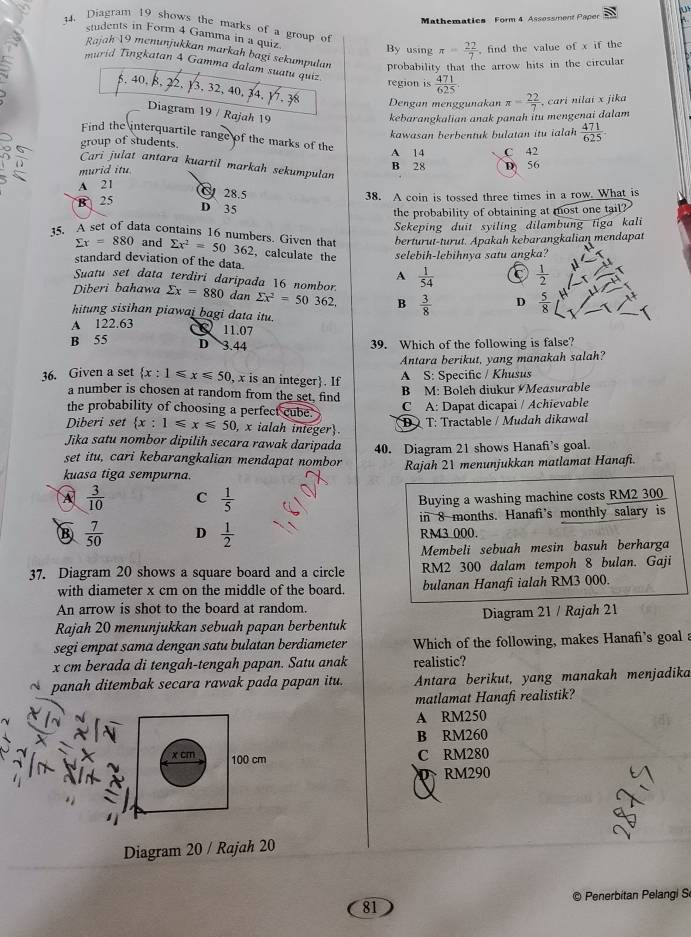 Mathematics Form 4 Assessment Paper
34. Diagram 19 shows the marks of a group of
students in Form 4 Gamma in a quiz.
Rajah 19 menunjukkan markah bagi sekumpulan
murid Tingkatan 4 Gamma dalam suatu quiz.
5, 40, 8, 22, 13, 32, 40, 34, 17, 38
Diagram 19 / Rajah 19
Find the interquartile range of the marks of the
group of students.
Cari julat antara kuartil markah sekumpulan
murid itu.
A 21
C 28.5
B 25
D 35
n=19
35. A set of data contains 16 numbers. Given that
Σx = 880 and Σx² = 50 362, calculate the
standard deviation of the data.
Suatu set data terdiri daripada 16 nombor.
Diberi bahawa Σx = 880 dan Σx² = 50 362,
hitung sisihan piawai bagi data itu.
A 122.63
C 11.07
B 55
D 3.44
36. Given a set {x : 1 ⩽ x ⩽ 50, x is an integer}. If
a number is chosen at random from the set, find
the probability of choosing a perfect cube.
Diberi set {x : 1 ⩽ x ⩽ 50, x ialah integer}.
Jika satu nombor dipilih secara rawak daripada
set itu, cari kebarangkalian mendapat nombor
kuasa tiga sempurna.
1,8,27
A 3/10
C 1/5
B 7/50
D 1/2
37. Diagram 20 shows a square board and a circle
with diameter x cm on the middle of the board.
An arrow is shot to the board at random.
Rajah 20 menunjukkan sebuah papan berbentuk
segi empat sama dengan satu bulatan berdiameter
x cm berada di tengah-tengah papan. Satu anak
panah ditembak secara rawak pada papan itu.
x cm
100 cm
Diagram 20 / Rajah 20
By using π = 22/7, find the value of x if the
probability that the arrow hits in the circular
region is 471/625.
Dengan menggunakan π = 22/7, cari nilai x jika
kebarangkalian anak panah itu mengenai dalam
kawasan berbentuk bulatan itu ialah 471/625.
A 14
C 42
B 28
D 56
38. A coin is tossed three times in a row. What is
the probability of obtaining at most one tail?
Sekeping duit syiling dilambung tiga kali
berturut-turut. Apakah kebarangkalian mendapat
selebih-lebihnya satu angka?
A 1/54
C 1/2
B 3/8
D 5/8
39. Which of the following is false?
Antara berikut, yang manakah salah?
A S: Specific / Khusus
B M: Boleh diukur / Measurable
C A: Dapat dicapai / Achievable
D T: Tractable / Mudah dikawal
40. Diagram 21 shows Hanafi's goal.
Rajah 21 menunjukkan matlamat Hanafi.
Buying a washing machine costs RM2 300
in 8 months. Hanafi's monthly salary is
RM3 000.
Membeli sebuah mesin basuh berharga
RM2 300 dalam tempoh 8 bulan. Gaji
bulanan Hanafi ialah RM3 000.
Diagram 21 / Rajah 21
Which of the following, makes Hanafi's goal
realistic?
Antara berikut, yang manakah menjadika
matlamat Hanafi realistik?
A RM250
B RM260
C RM280
D RM290
287.5
81
© Penerbitan Pelangi S